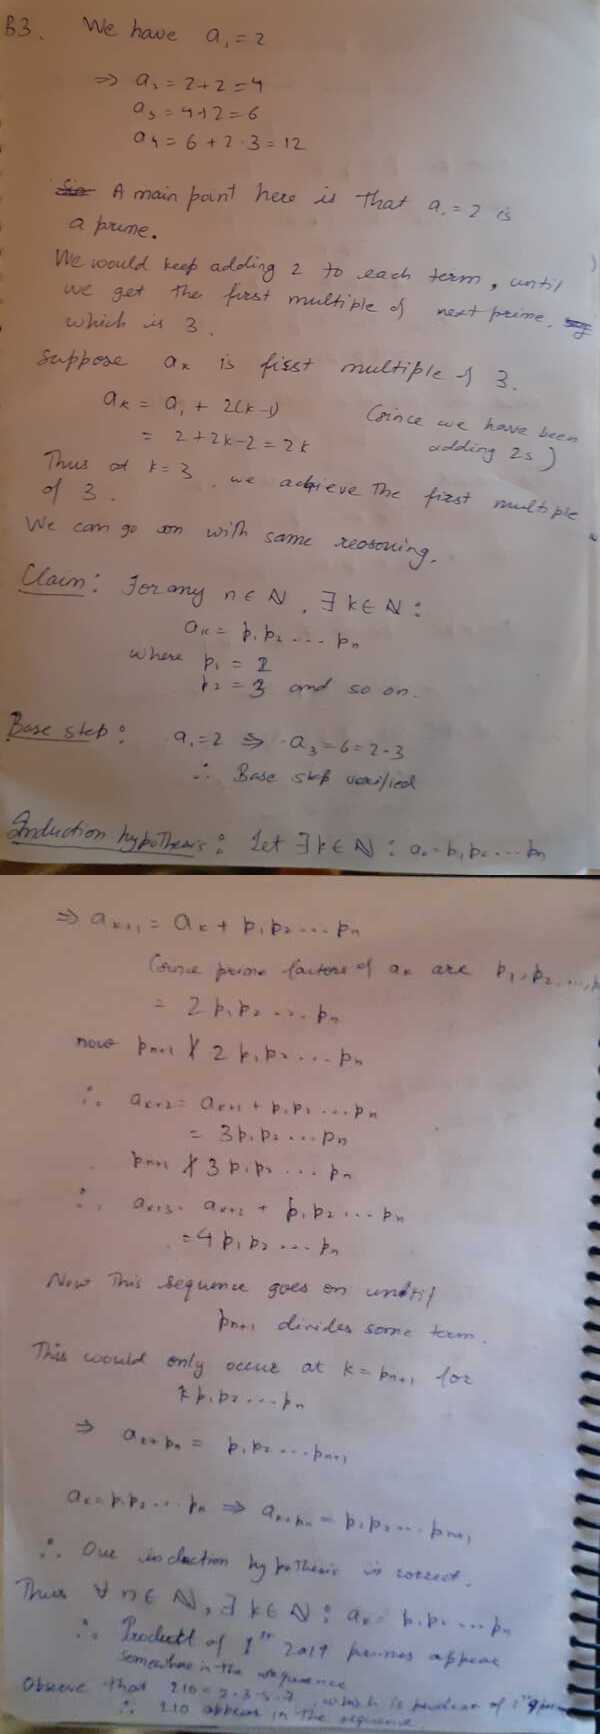 B3. We have a₁ = 2
⇒ a₂ = 2+2 = 4
a₃ = 4+2 = 6
a₄ = 6 + 2·3 = 12
A main point here is that a₁ = 2 is
a prime.
We would keep adding 2 to each term, until
we get the first multiple of next prime,
which is 3.
Suppose aₖ is first multiple of 3.
aₖ = a₁ + 2(k-1) (since we have been
= 2+2k-2 = 2k adding 2s)
Thus at k=3, we achieve the first multiple
of 3.
We can go on with same reasoning.
Claim: For any n ∈ ℕ, ∃ k ∈ ℕ :
aₖ = p₁p₂ .... pₙ
where p₁ = 2
p₂ = 3 and so on.
Base step: a₁=2 ⇒ a₃ = 6 = 2·3
∴ Base step verified
Induction hypothesis: Let ∃ k ∈ ℕ : aₖ = p₁p₂ .... pₙ
⇒ aₖ₊₁ = aₖ + p₁p₂ .... pₙ
(since prime factors of aₖ are p₁, p₂, ...,
= 2 p₁p₂ .... pₙ
now pₙ₊₁ ∤ 2 p₁p₂ .... pₙ
∴ aₖ₊₂ = aₖ₊₁ + p₁p₂ .... pₙ
= 3p₁p₂ ... pₙ
pₙ₊₁ ∤ 3 p₁p₂ .... pₙ
∴ aₖ₊₃ = aₖ₊₂ + p₁p₂ ... pₙ
= 4 p₁p₂ .... pₙ
Now this sequence goes on until
pₙ₊₁ divides some term.
This would only occur at k = pₙ₊₁ for
k p₁p₂ .... pₙ
⇒ aₖ₊ₚₙ = p₁p₂ .... pₙ₊₁
aₖ = p₁p₂ .... pₙ ⇒ aₖ₊ₚₙ = p₁p₂ .... pₙ₊₁
∴ Our induction hypothesis is correct.
Thus ∀ n ∈ ℕ, ∃ k ∈ ℕ : aₖ = p₁p₂ .... pₙ
∴ Product of 1st 2019 primes appear
somewhere in the sequence
Observe that 210 = 2·3·5·7, which is product of 1st 4
∴ 210 appears in the sequence